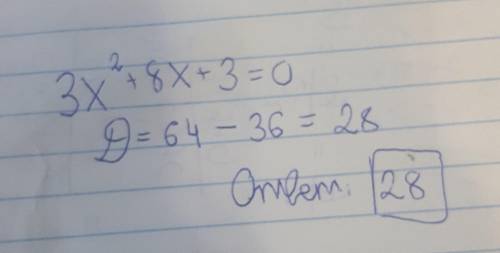 3x² + 8x + 3 = 0
D = 64 - 36 = 28
Ответ: 28